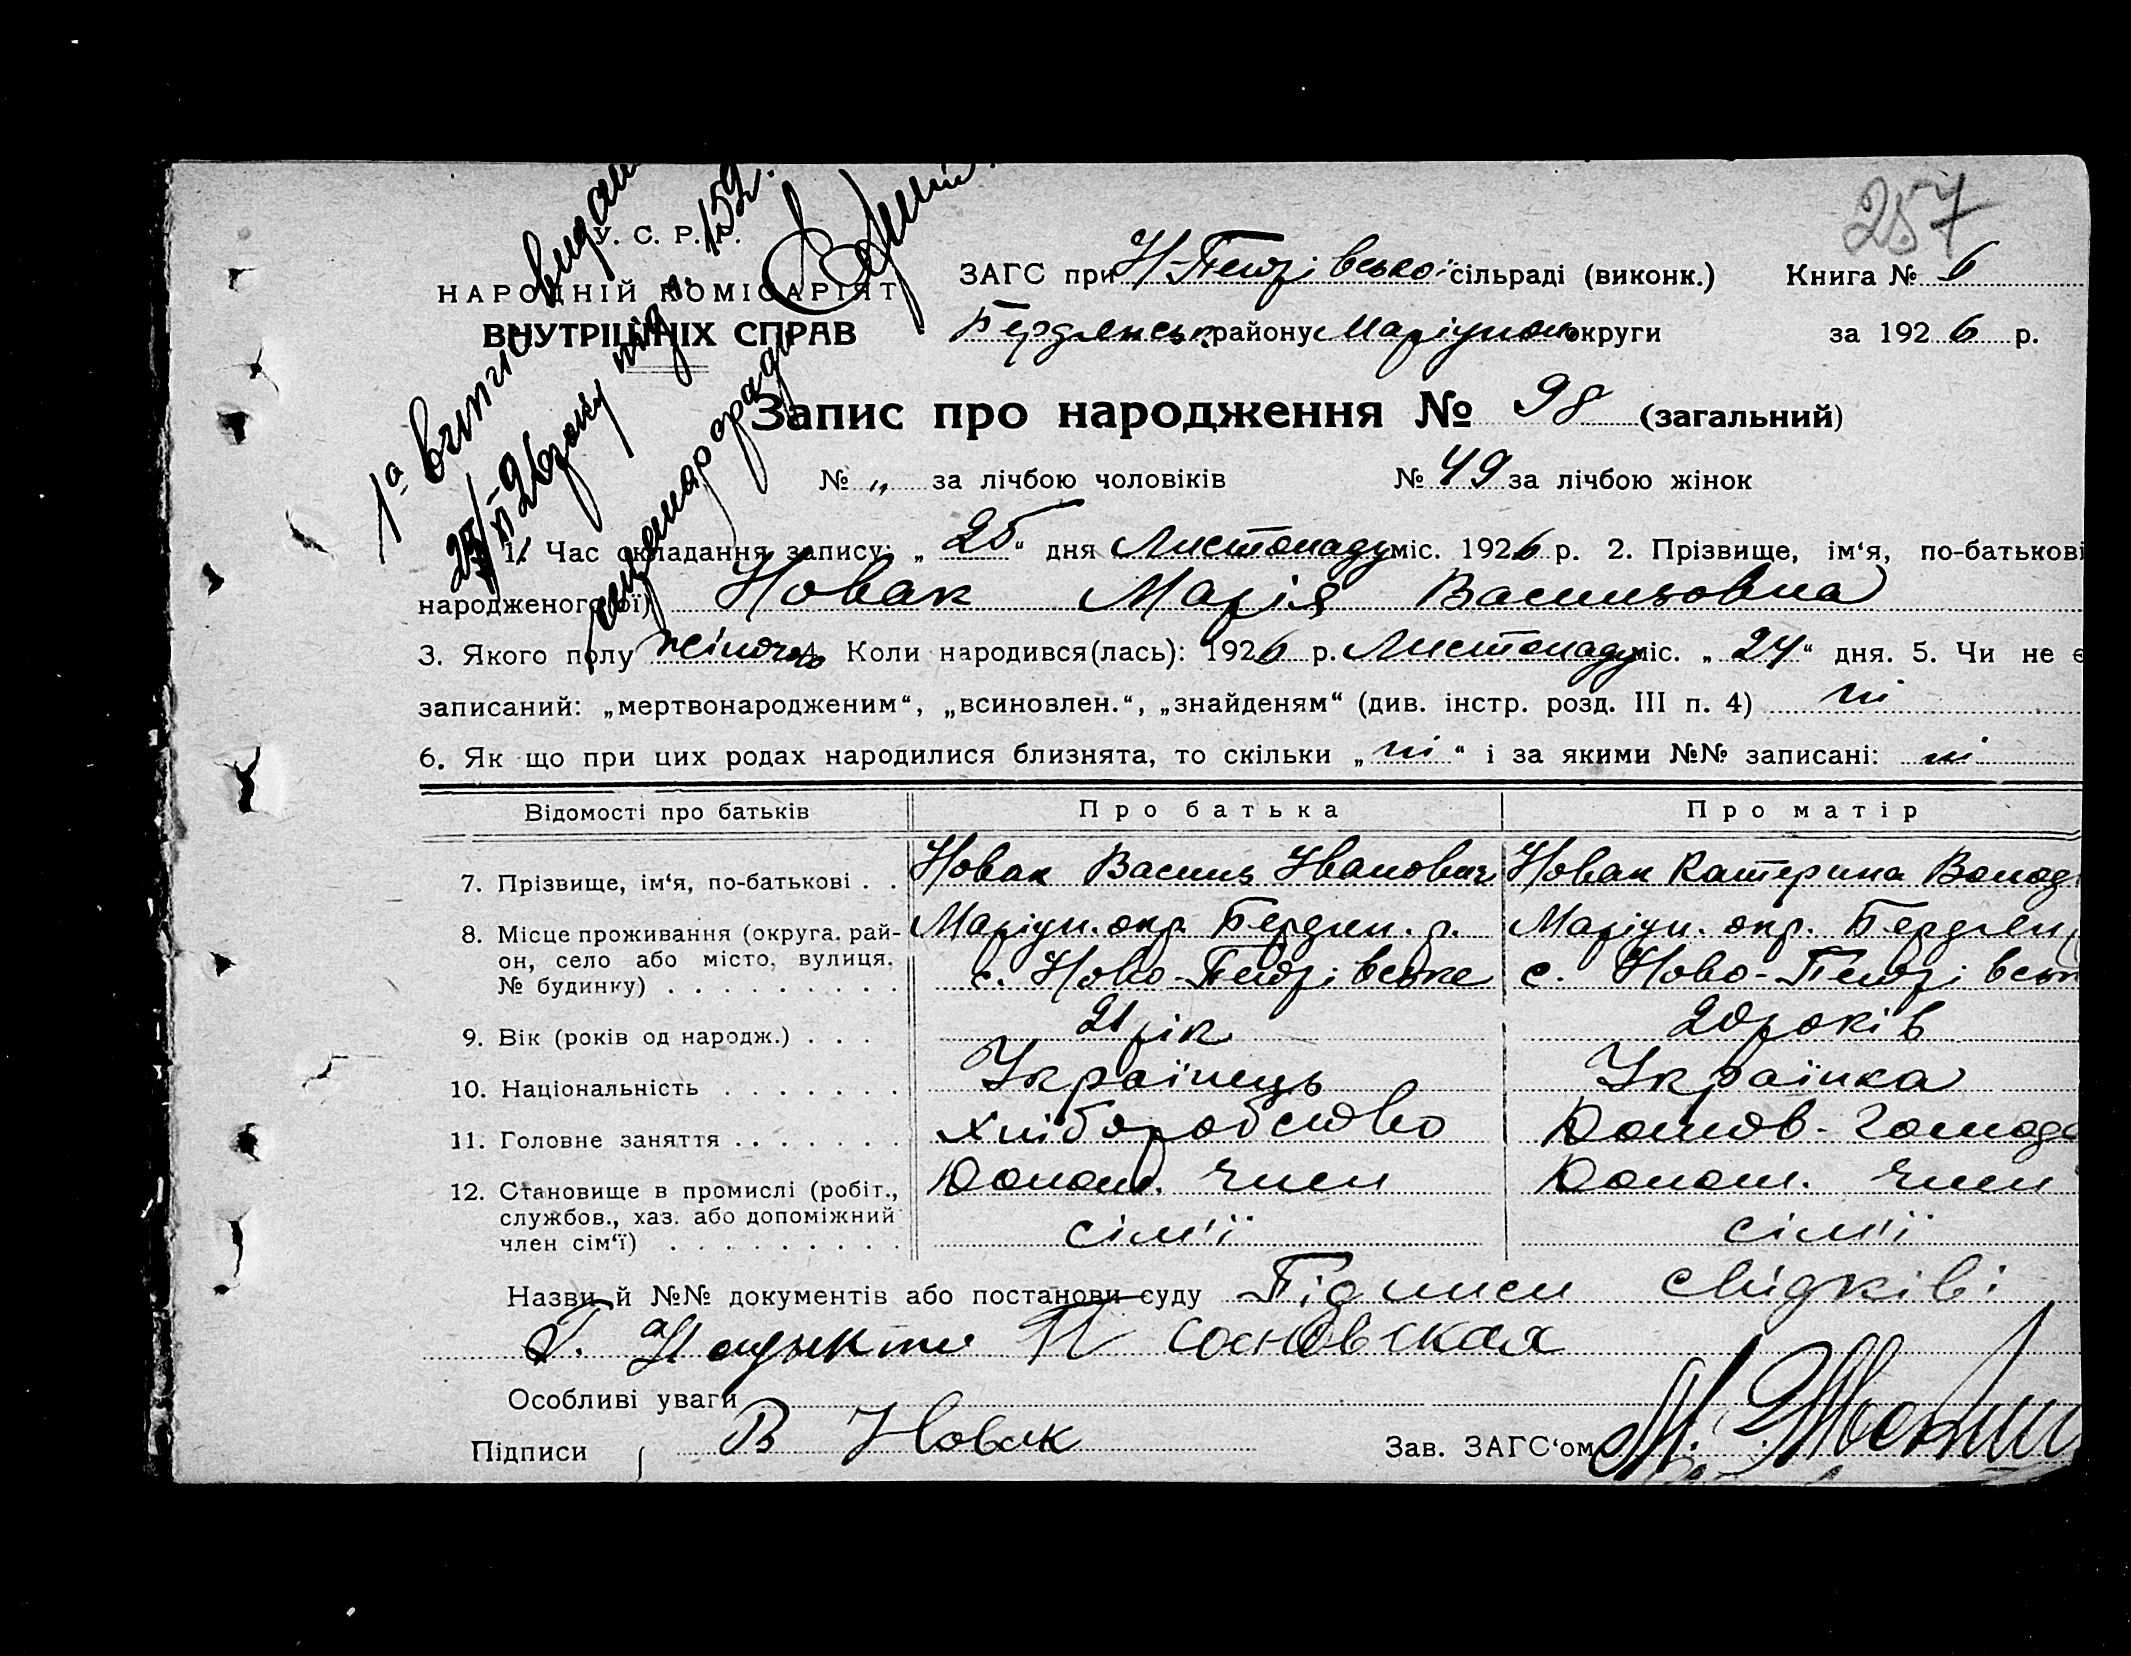 257
У. С. Р. Р.
НАРОДНІЙ КОМІСАРІЯТ
ВНУТРІШНІХ СПРАВ
1а витяг видан
під № 152.
ЗАГС при Н-Петрівської сільраді (виконк.) Книга № 6
Бердянськ. району Маріупол. округи за 1926 р.
Запис про народження № 98 (загальний)
№ „ за лічбою чоловіків № 49 за лічбою жінок
1. Час складання запису: „25“ дня Листопаду міс. 1926 р. 2. Прізвище, ім‘я, по-батькові
народженого(ої) Новак Марія Васильовна
3. Якого полу жіночого 4. Коли народився(лась): 1926 р. Листопаду міс. „24“ дня. 5. Чи не є
записаний: „мертвонародженим“, „всиновлен.“, „знайденям“ (див. інстр. розд. III п. 4) ні
6. Як що при цих родах народилися близнята, то скільки „ні“ і за якими №№ записані: ні
Відомості про батьків Про батька Про матір
7. Прізвище, ім‘я, по-батькові . . Новак Василь Іванович Новак Катерина Волод
8. Місце проживання (округа, рай- Маріуп. окр. Бердян. р. Маріуп. окр. Бердян.
он, село або місто, вулиця, с. Ново-Петрівське с. Ново-Петрівськ
№ будинку) . . . . . . . . .
9. Вік (років од народж.) . . . 21 рік 20 років
10. Національність . . . . . . . Українець Українка
11. Головне заняття . . . . . . . Хліборобство Домов-господа
12. Становище в промислі (робіт., Допом. член Допом. член
службов., хаз. або допоміжний сім'ї сім'ї
член сім‘ї) . . . . . . . . .
Назви й №№ документів або постанови суду Підписи свідків:
П Сосновская
Особливі уваги
Підписи В Новак Зав. ЗАГС‘ом